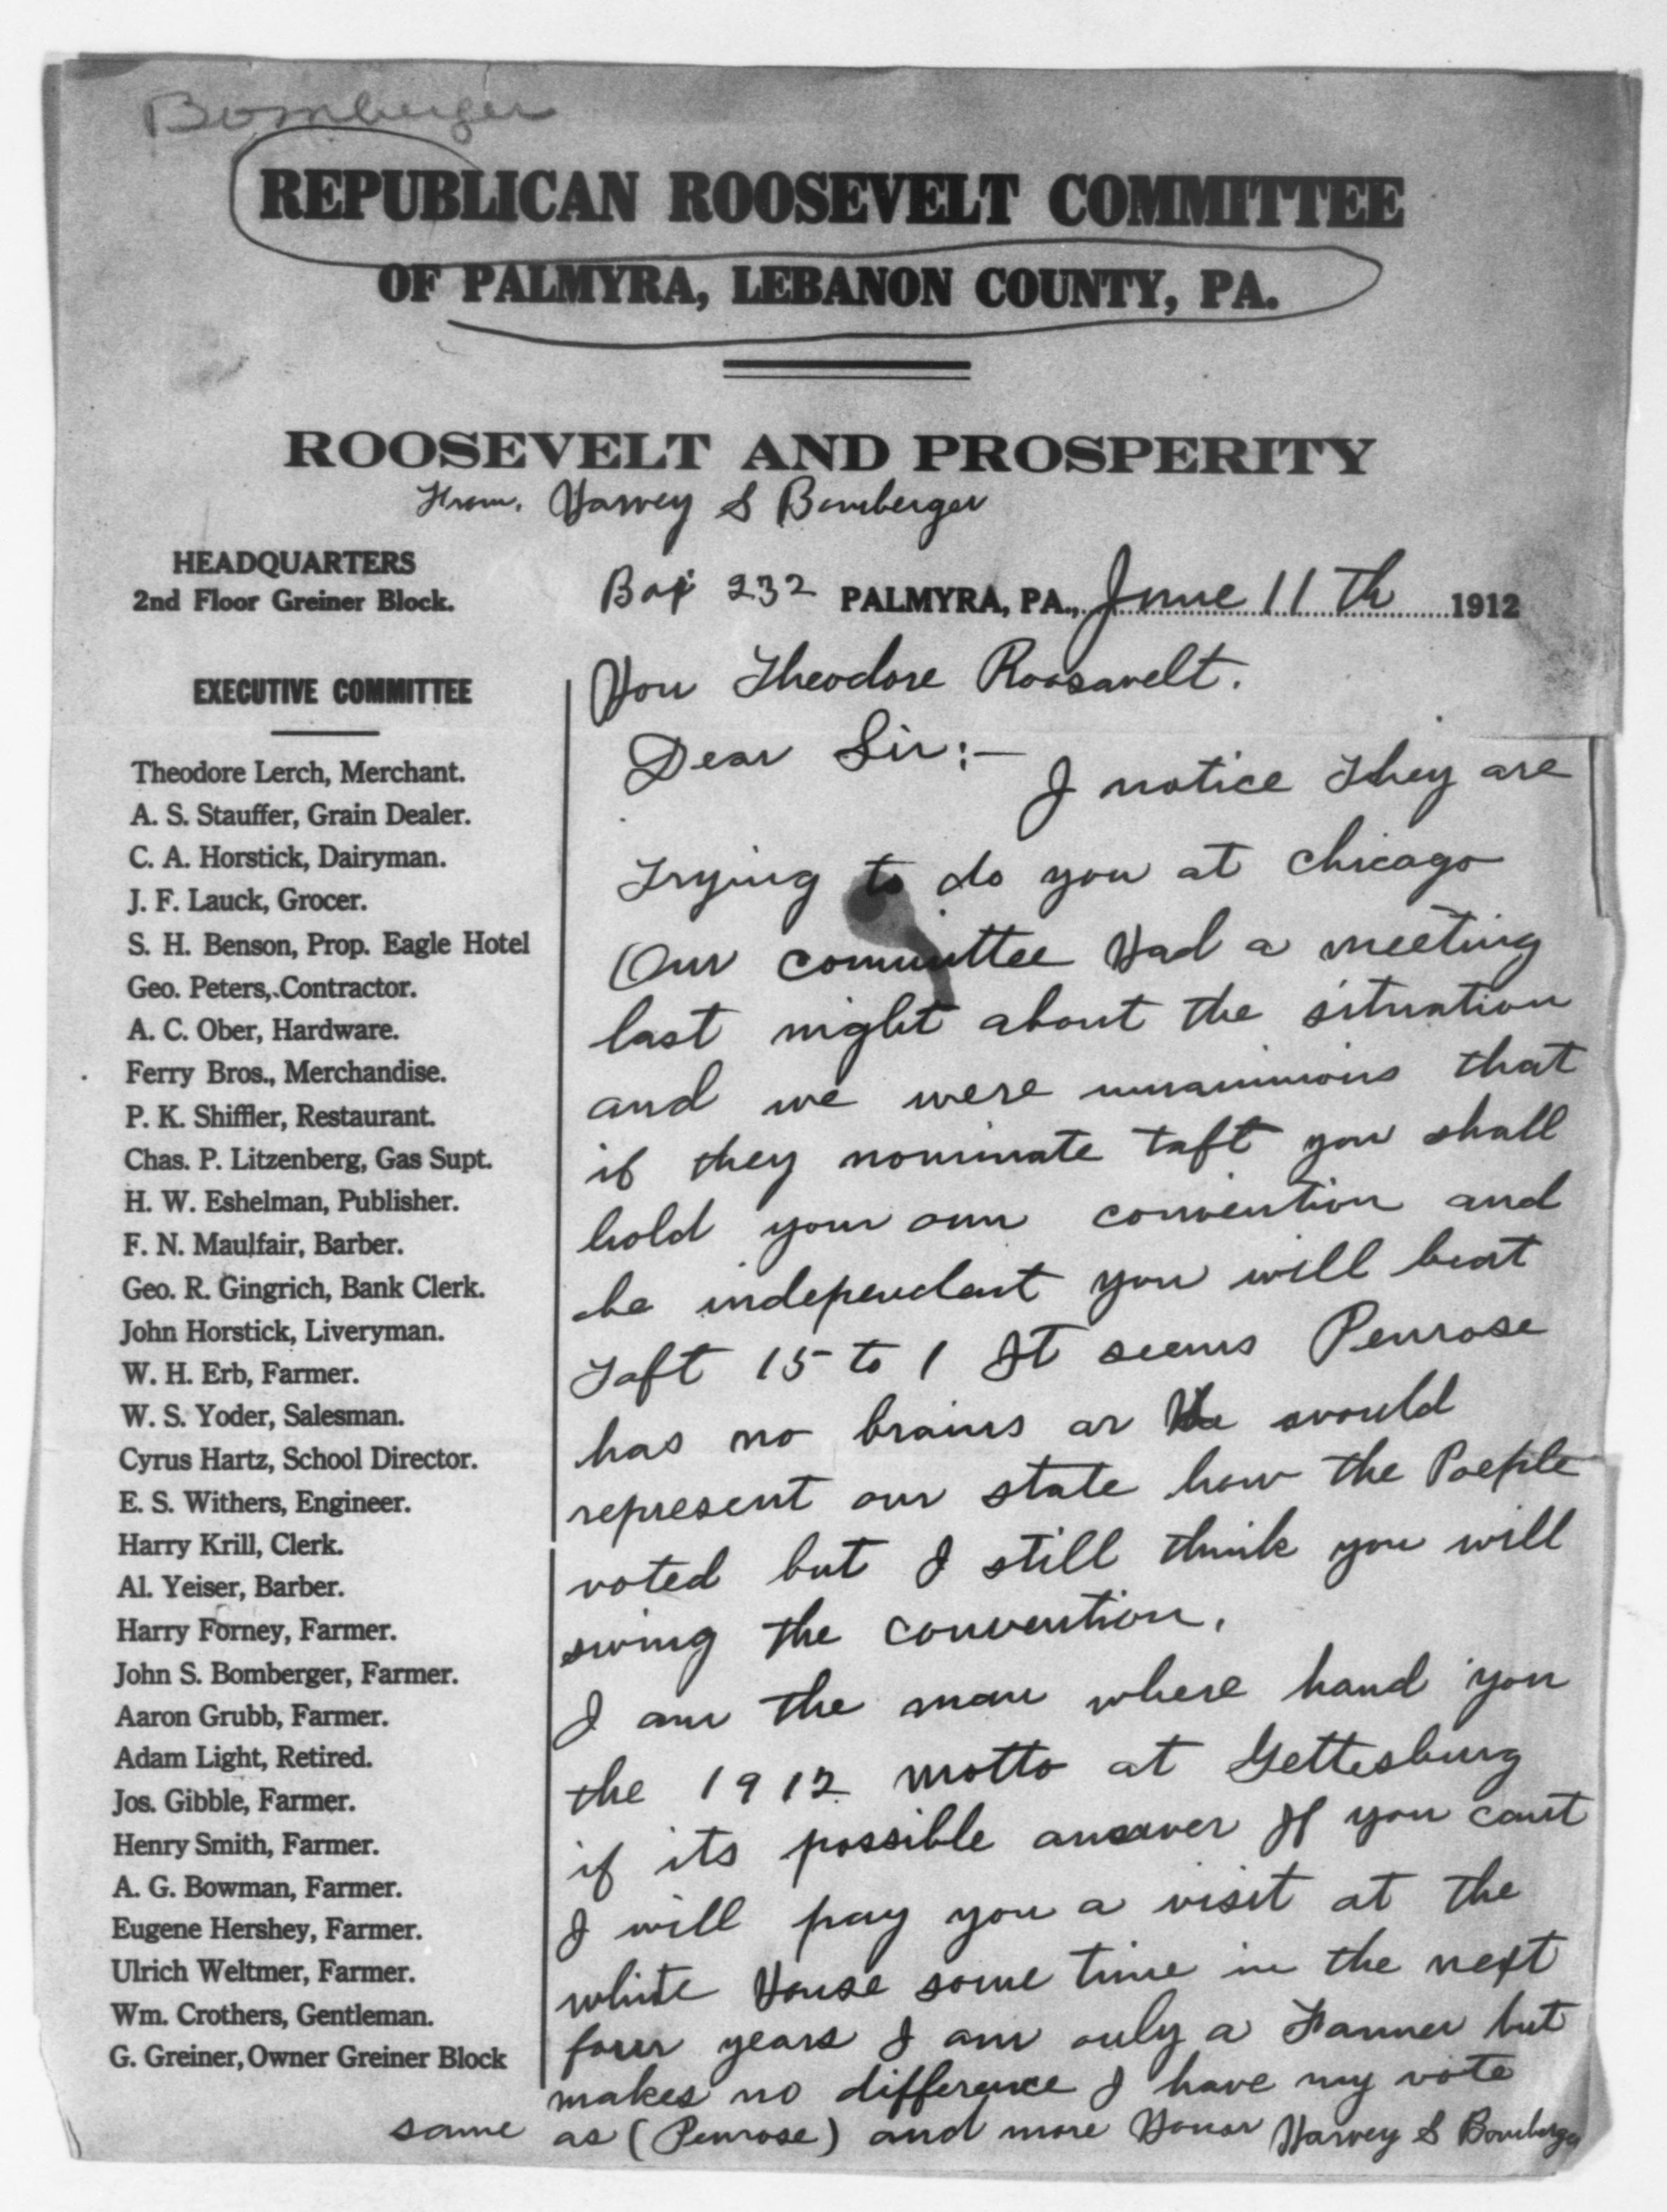 Bomberger
REPUBLICAN ROOSEVELT COMMITTEE
OF PALMYRA, LEBANON COUNTY, PA.
ROOSEVELT AND PROSPERITY
From, Harvey S Bomberger
HEADQUARTERS
2nd Floor Greiner Block.
Box 232 PALMYRA, PA., June 11th 1912
EXECUTIVE COMMITTEE
Theodore Lerch, Merchant.
A. S. Stauffer, Grain Dealer.
C. A. Horstick, Dairyman.
J. F. Lauck, Grocer.
S. H. Benson, Prop. Eagle Hotel
Geo. Peters, Contractor.
A. C. Ober, Hardware.
Ferry Bros., Merchandise.
P. K. Shiffler, Restaurant.
Chas. P. Litzenberg, Gas Supt.
H. W. Eshelman, Publisher.
F. N. Maulfair, Barber.
Geo. R. Gingrich, Bank Clerk.
John Horstick, Liveryman.
W. H. Erb, Farmer.
W. S. Yoder, Salesman.
Cyrus Hartz, School Director.
E. S. Withers, Engineer.
Harry Krill, Clerk.
Al. Yeiser, Barber.
Harry Forney, Farmer.
John S. Bomberger, Farmer.
Aaron Grubb, Farmer.
Adam Light, Retired.
Jos. Gibble, Farmer.
Henry Smith, Farmer.
A. G. Bowman, Farmer.
Eugene Hershey, Farmer.
Ulrich Weltmer, Farmer.
Wm. Crothers, Gentleman.
G. Greiner, Owner Greiner Block
Hon Theodore Roosavelt.
Dear Sir:—
I notice they are
trying to do you at Chicago
Our committee Had a meeting
last night about the situation
and we were unanimous that
if they nominate taft you shall
hold your own convention and
be independant you will beat
Taft 15 to 1 It seems Penrose
has no brains or He would
represent our state how the Poeple
voted but I still think you will
swing the convention.
I am the man where hand you
the 1912 motto at Gettesburg
if its possible answer If you cant
I will pay you a visit at the
white House some time in the next
four years I am only a Farmer but
makes no difference I have my vote
same as (Penrose) and more Honor Harvey S Bomberger